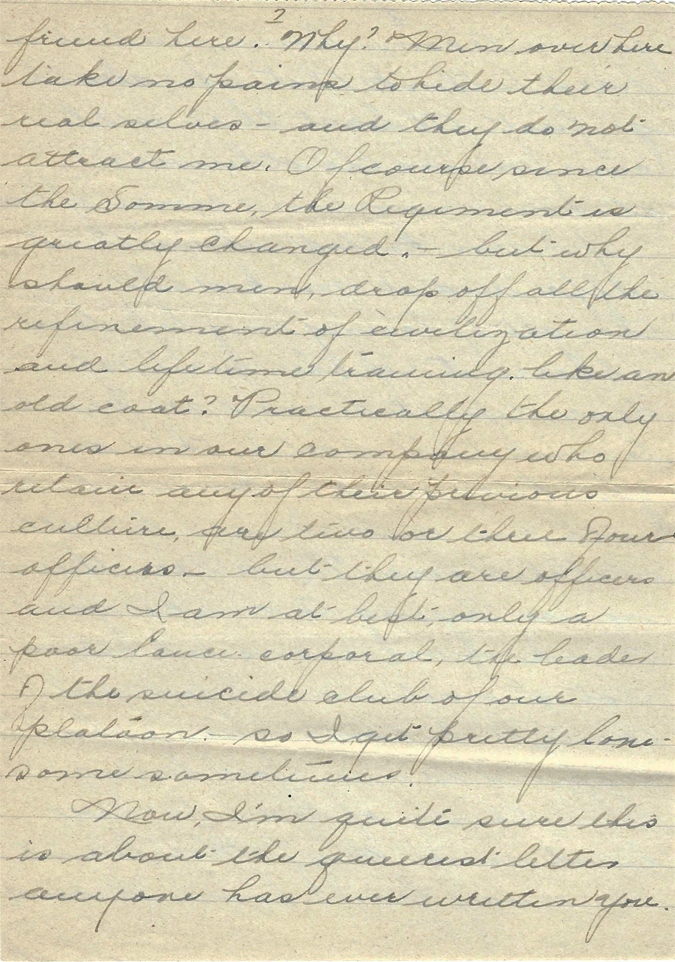 friend here.? Why? Men over here
take no pains to hide their
real selves - and they do not
attract me. Of course, since
the Somme, the Regiment is
greatly changed. - but why
should men, drop off all the
refinement of civilization
and lifetime training, like an
old coat? Practically the only
ones in our company who
retain any of their previous
culture, are two or three of our
officers - but they are officers
and I am at best only a
poor lance corporal, the leader
of the suicide club of our
platoon. - so I get pretty lone-
some sometimes.
Now, I'm quite sure this
is about the queerest letter
anyone has ever written you.